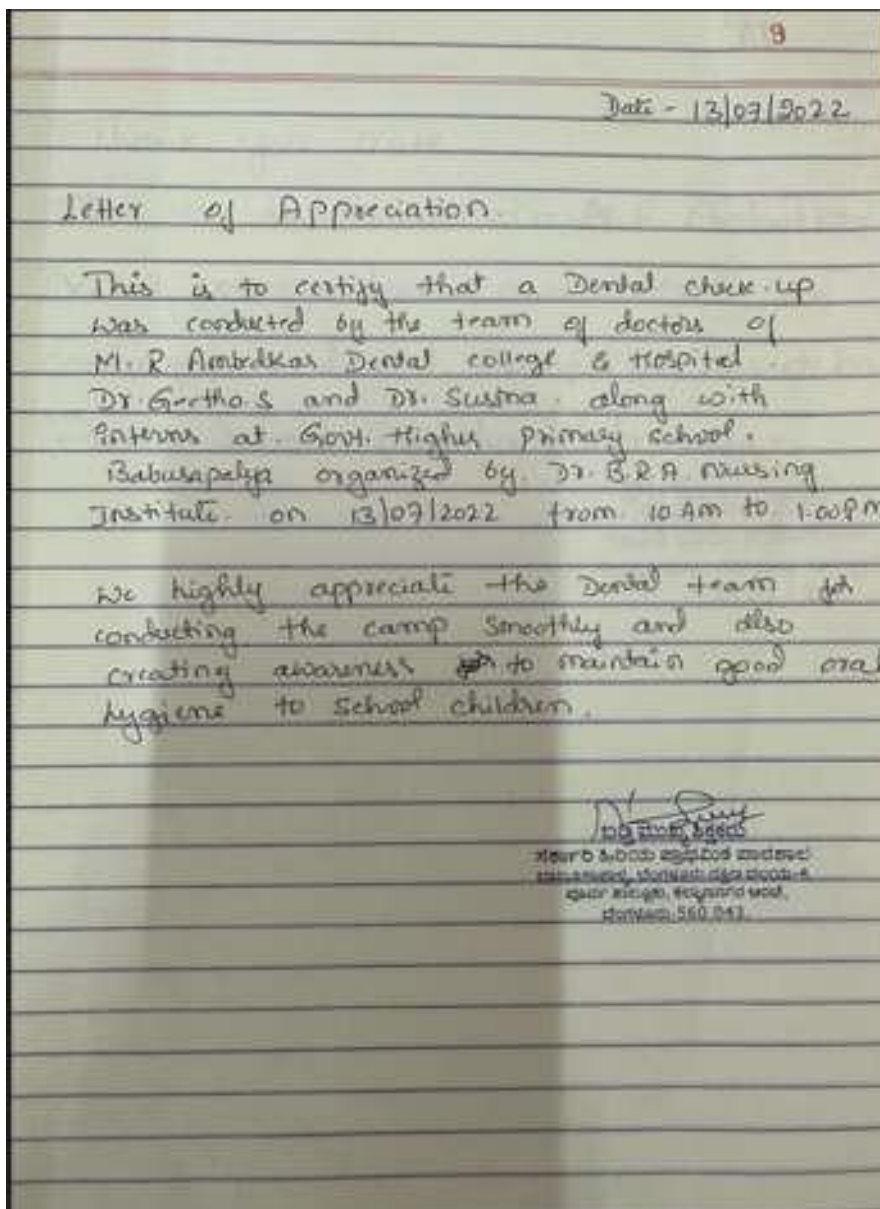 9
Date - 13/07/2022
Letter of Appreciation.
This is to certify that a Dental check-up
was conducted by the team of doctors of
M. R Ambedkar Dental college & Hospital.
Dr. Geetha.S and Dr. Susma. along with
interns at Govt. Higher primary school.
Babusapalya organized by. Dr. B.R.A. Nursing
Institute. on 13/07/2022 from 10 Am to 1.00Pm
We highly appreciate the Dental team for
conducting the camp smoothly and also
creating awareness to maintain good oral
hygiene to School children.
ಮುಖ್ಯ ಶಿಕ್ಷಕರು
ಸರ್ಕಾರಿ ಹಿರಿಯ ಪ್ರಾಥಮಿಕ ಪಾಠಶಾಲೆ
ಬೆಂಗಳೂರು-560 043